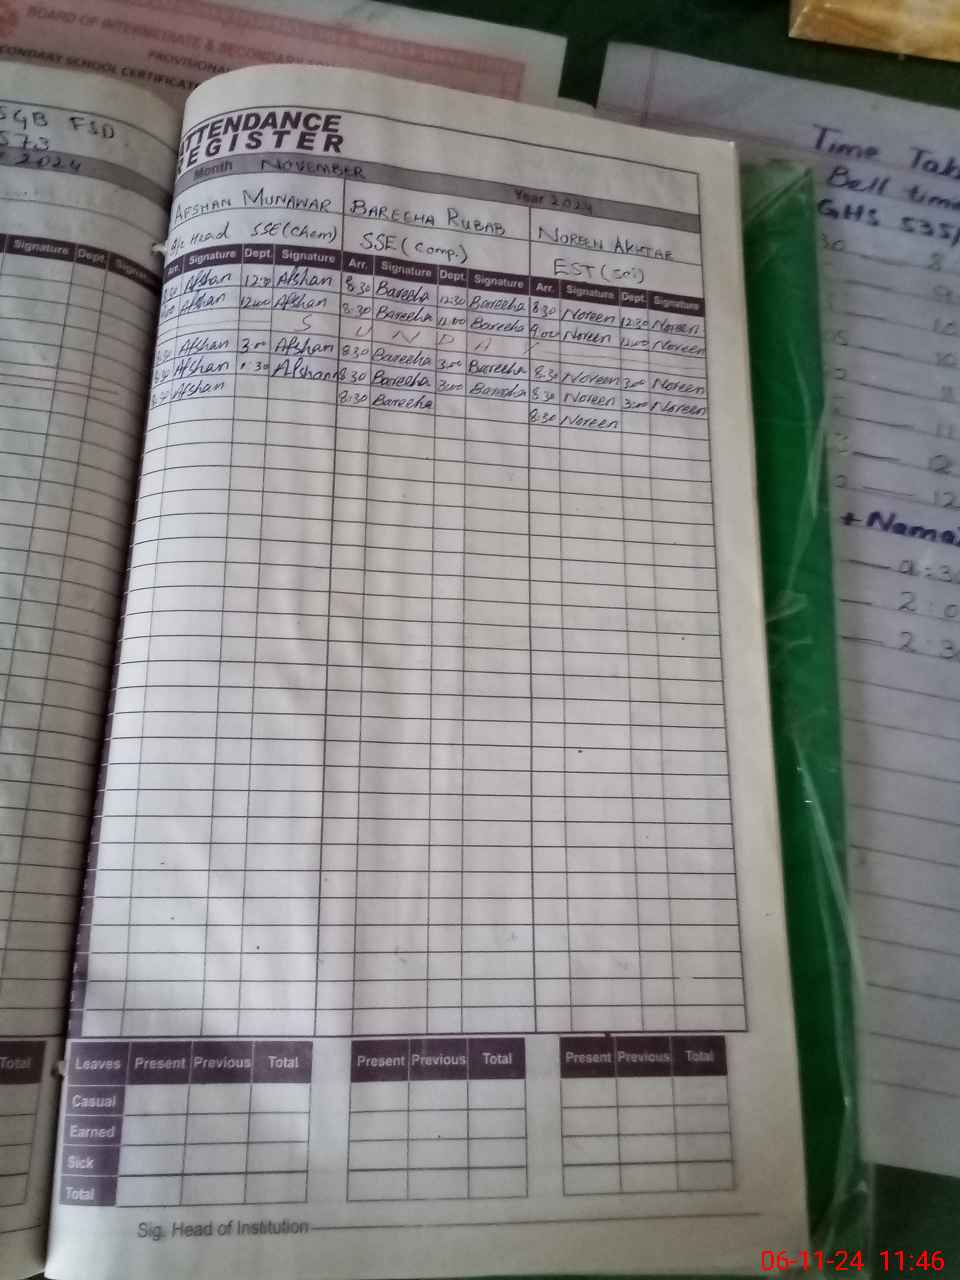 BOARD OF INTERMEDIATE & SECONDARY
PROVISIONAL
SECONDARY SCHOOL CERTIFICATE
FSD
573
2024
Signature Dept. Signature
Total
ATTENDANCE
REGISTER
Month NOVEMBER Year 2024
AFSHAN MUNAWAR BAREEHA RUBAB NOREEN AKHTAR
Head SSE(Chem) SSE(Comp.) EST(Sci)
Arr. Signature Dept. Signature Arr. Signature Dept. Signature Arr. Signature Dept. Signature
8:30 Afshan 12:30 Afshan 8:30 Bareeha 12:30 Bareeha 8:30 Noreen 12:30 Noreen
Afshan 12:00 Afshan 8:30 Bareeha 12:00 Bareeha 9:00 Noreen 12:00 Noreen
S U N D A Y
8:30 Afshan 3:00 Afshan 8:30 Bareeha 3:00 Bareeha 8:30 Noreen 3:00 Noreen
8:30 Afshan Afshan 8:30 Bareeha 3:00 Bareeha 8:30 Noreen 3:00 Noreen
8:30 Afshan 8:30 Bareeha 8:30 Noreen
Leaves Present Previous Total Present Previous Total Present Previous Total
Casual
Earned
Sick
Total
Sig. Head of Institution
Time
Bell time
GHS 535/
+ Namaz
06-11-24 11:46